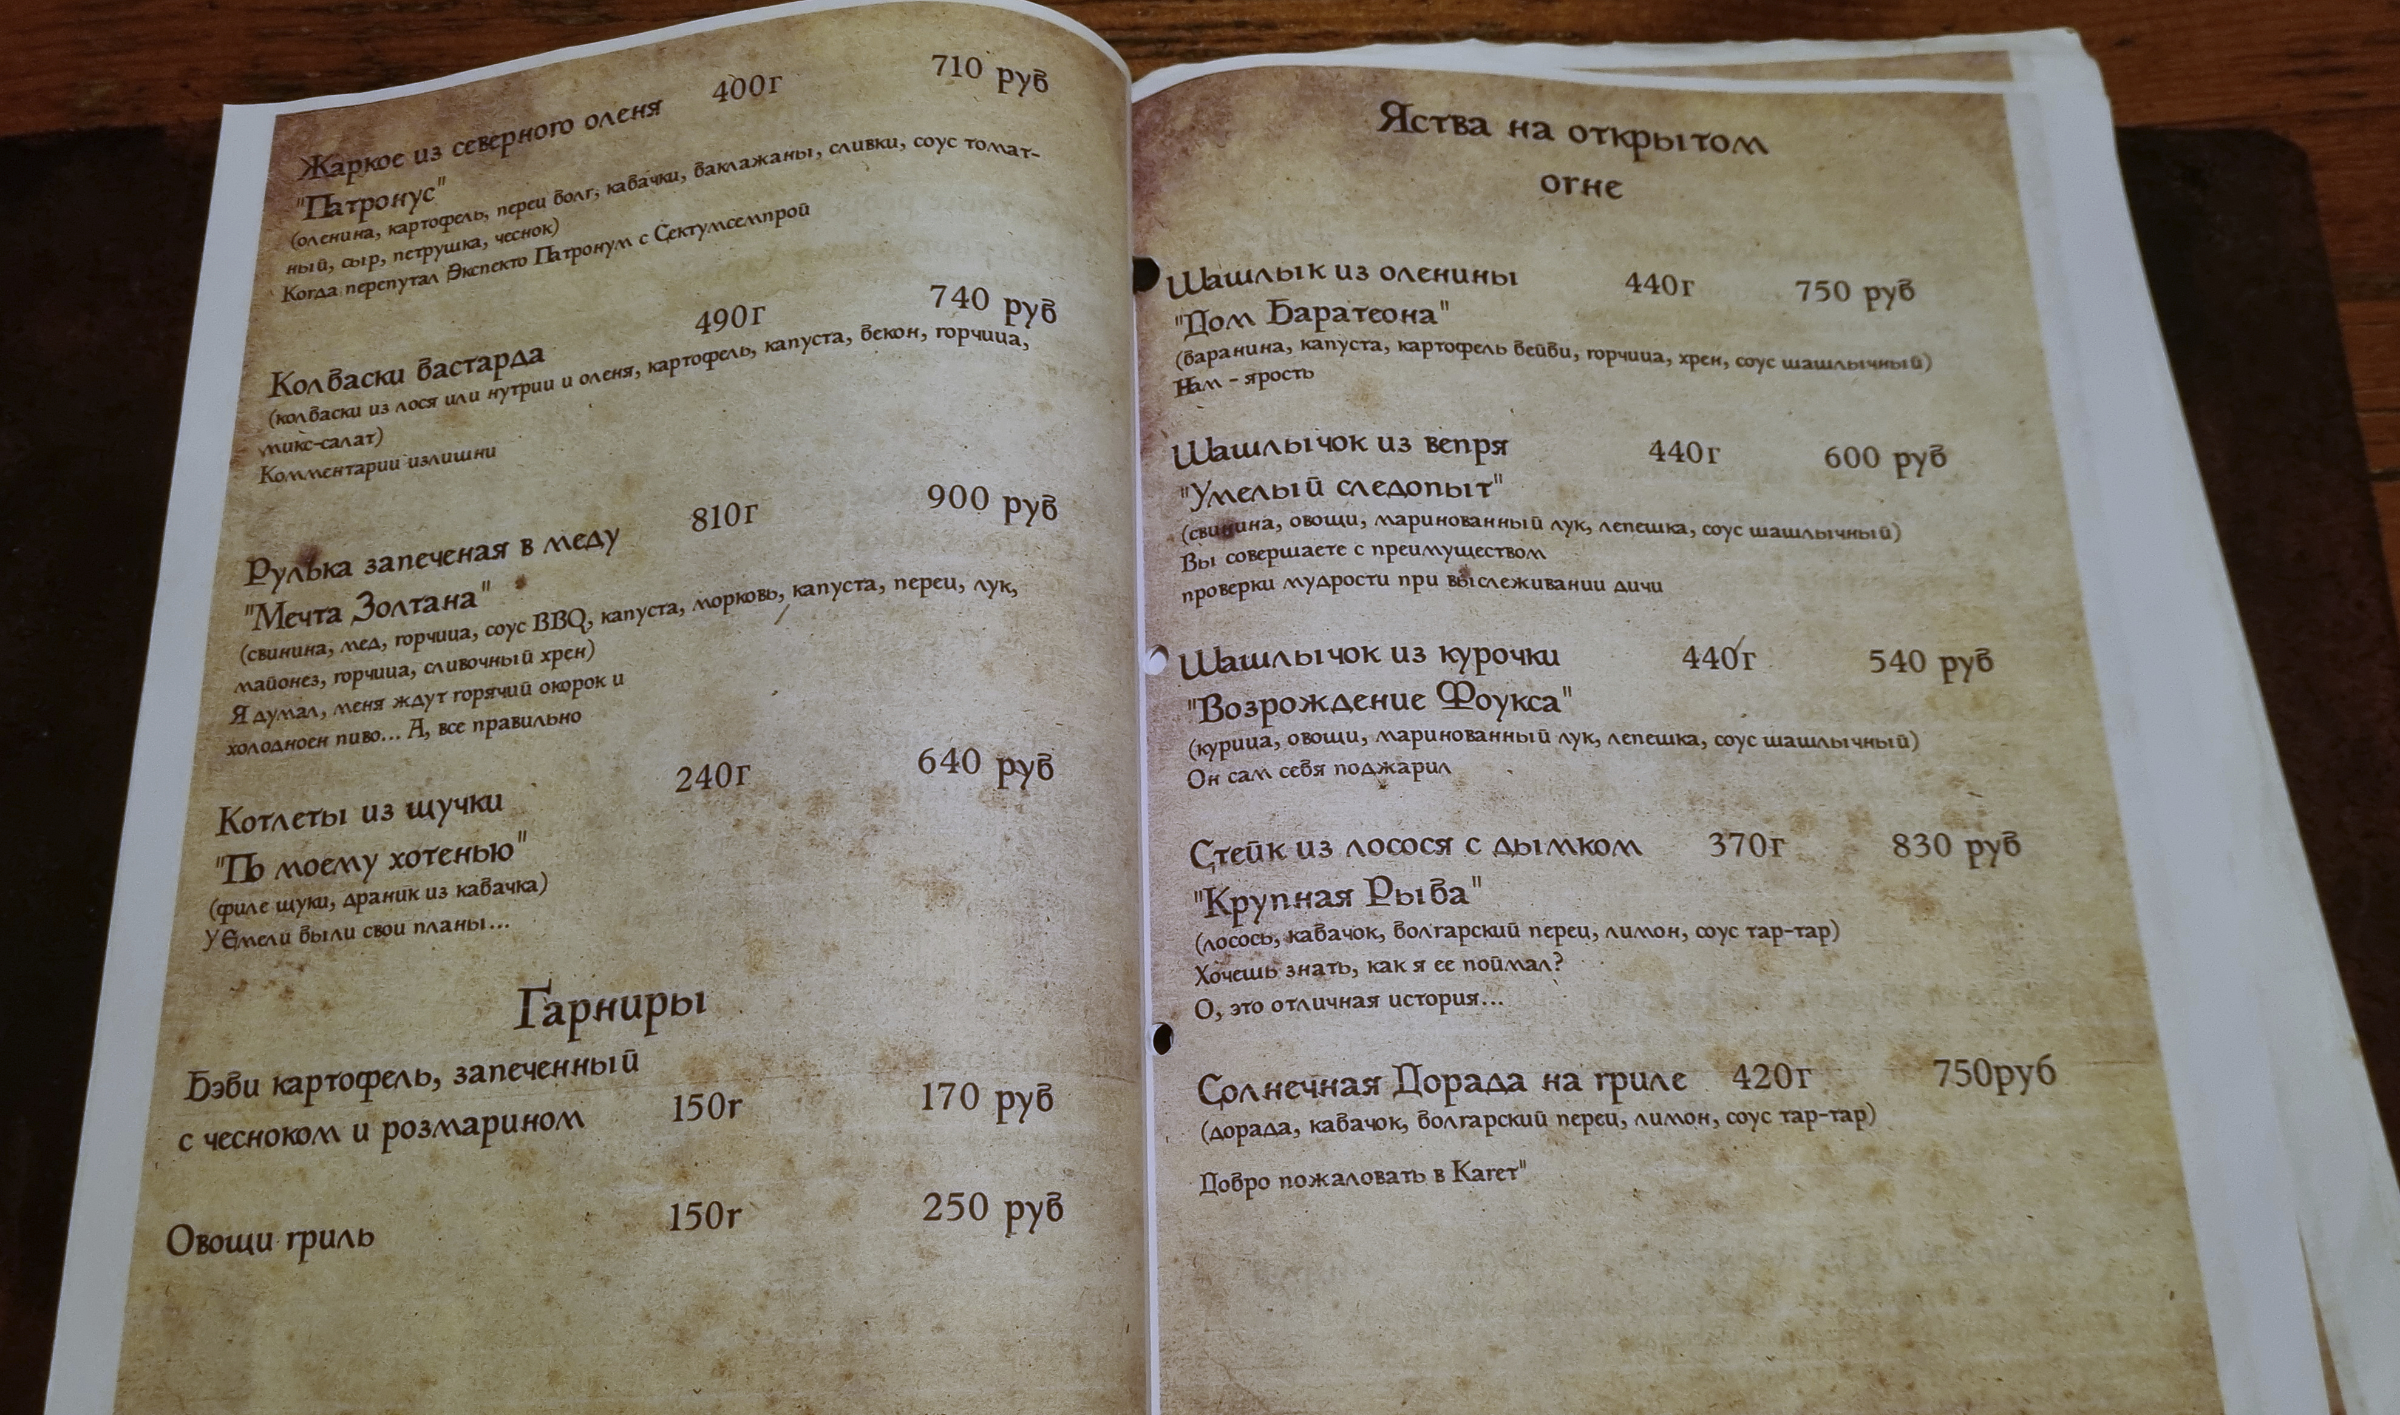 Жаркое из северного оленя 400г 710 руб
"Патронус"
(оленина, картофель, перец болг, кабачки, баклажаны, сливки, соус томат-
ный, сыр, петрушка, чеснок)
Когда перепутал Экспекто Патронум с Сектумсемпрой
Колбаски бастарда 490г 740 руб
(колбаски из лося или нутрии и оленя, картофель, капуста, бекон, горчица,
микс-салат)
Комментарии излишни
Рулька запеченая в меду 810г 900 руб
"Мечта Золтана"
(свинина, мед, горчица, соус BBQ, капуста, морковь, капуста, перец, лук,
майонез, горчица, сливочный хрен)
Я думал, меня ждут горячий окорок и
холодноен пиво... А, все правильно
Котлеты из щучки 240г 640 руб
"По моему хотенью"
(филе щуки, драник из кабачка)
У Емели были свои планы...
Гарниры
Бэби картофель, запеченный
с чесноком и розмарином 150г 170 руб
Овощи гриль 150г 250 руб
Яства на открытом
огне
Шашлык из оленины 440г 750 руб
"Дом Баратеона"
(баранина, капуста, картофель бейби, горчица, хрен, соус шашлычный)
Нам - ярость
Шашлычок из вепря 440г 600 руб
"Умелый следопыт"
(свинина, овощи, маринованный лук, лепешка, соус шашлычный)
Вы совершаете с преимуществом
проверки мудрости при выслеживании дичи
Шашлычок из курочки 440г 540 руб
"Возрождение Фоукса"
(курица, овощи, маринованный лук, лепешка, соус шашлычный)
Он сам себя поджарил
Стейк из лосося с дымком 370г 830 руб
"Крупная Рыба"
(лосось, кабачок, болгарский перец, лимон, соус тар-тар)
Хочешь знать, как я ее поймал?
О, это отличная история...
Солнечная Дорада на гриле 420г 750руб
(дорада, кабачок, болгарский перец, лимон, соус тар-тар)
Добро пожаловать в Карет"